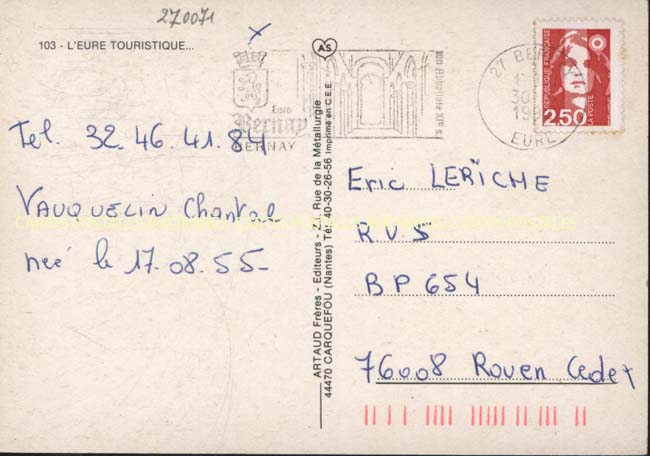 270071
103 - L'EURE TOURISTIQUE...
Tel. 32.46.41.84
VAUQUELIN Chantal
née le 17.08.55-
AS
ARTAUD Frères - Editeurs - Z.I. Rue de la Métallurgie
44470 CARQUEFOU (Nantes) Tél. 40-30-26-56 Imprimé en C.E.E.
Eure
Bernay
BERNAY
Abbatiale XIe s
27 BERNAY
30
19
EURE
REPUBLIQUE FRANÇAISE
2,50
LA POSTE
Eric LERICHE
R.V.S
BP 654
76008 Rouen Cedex